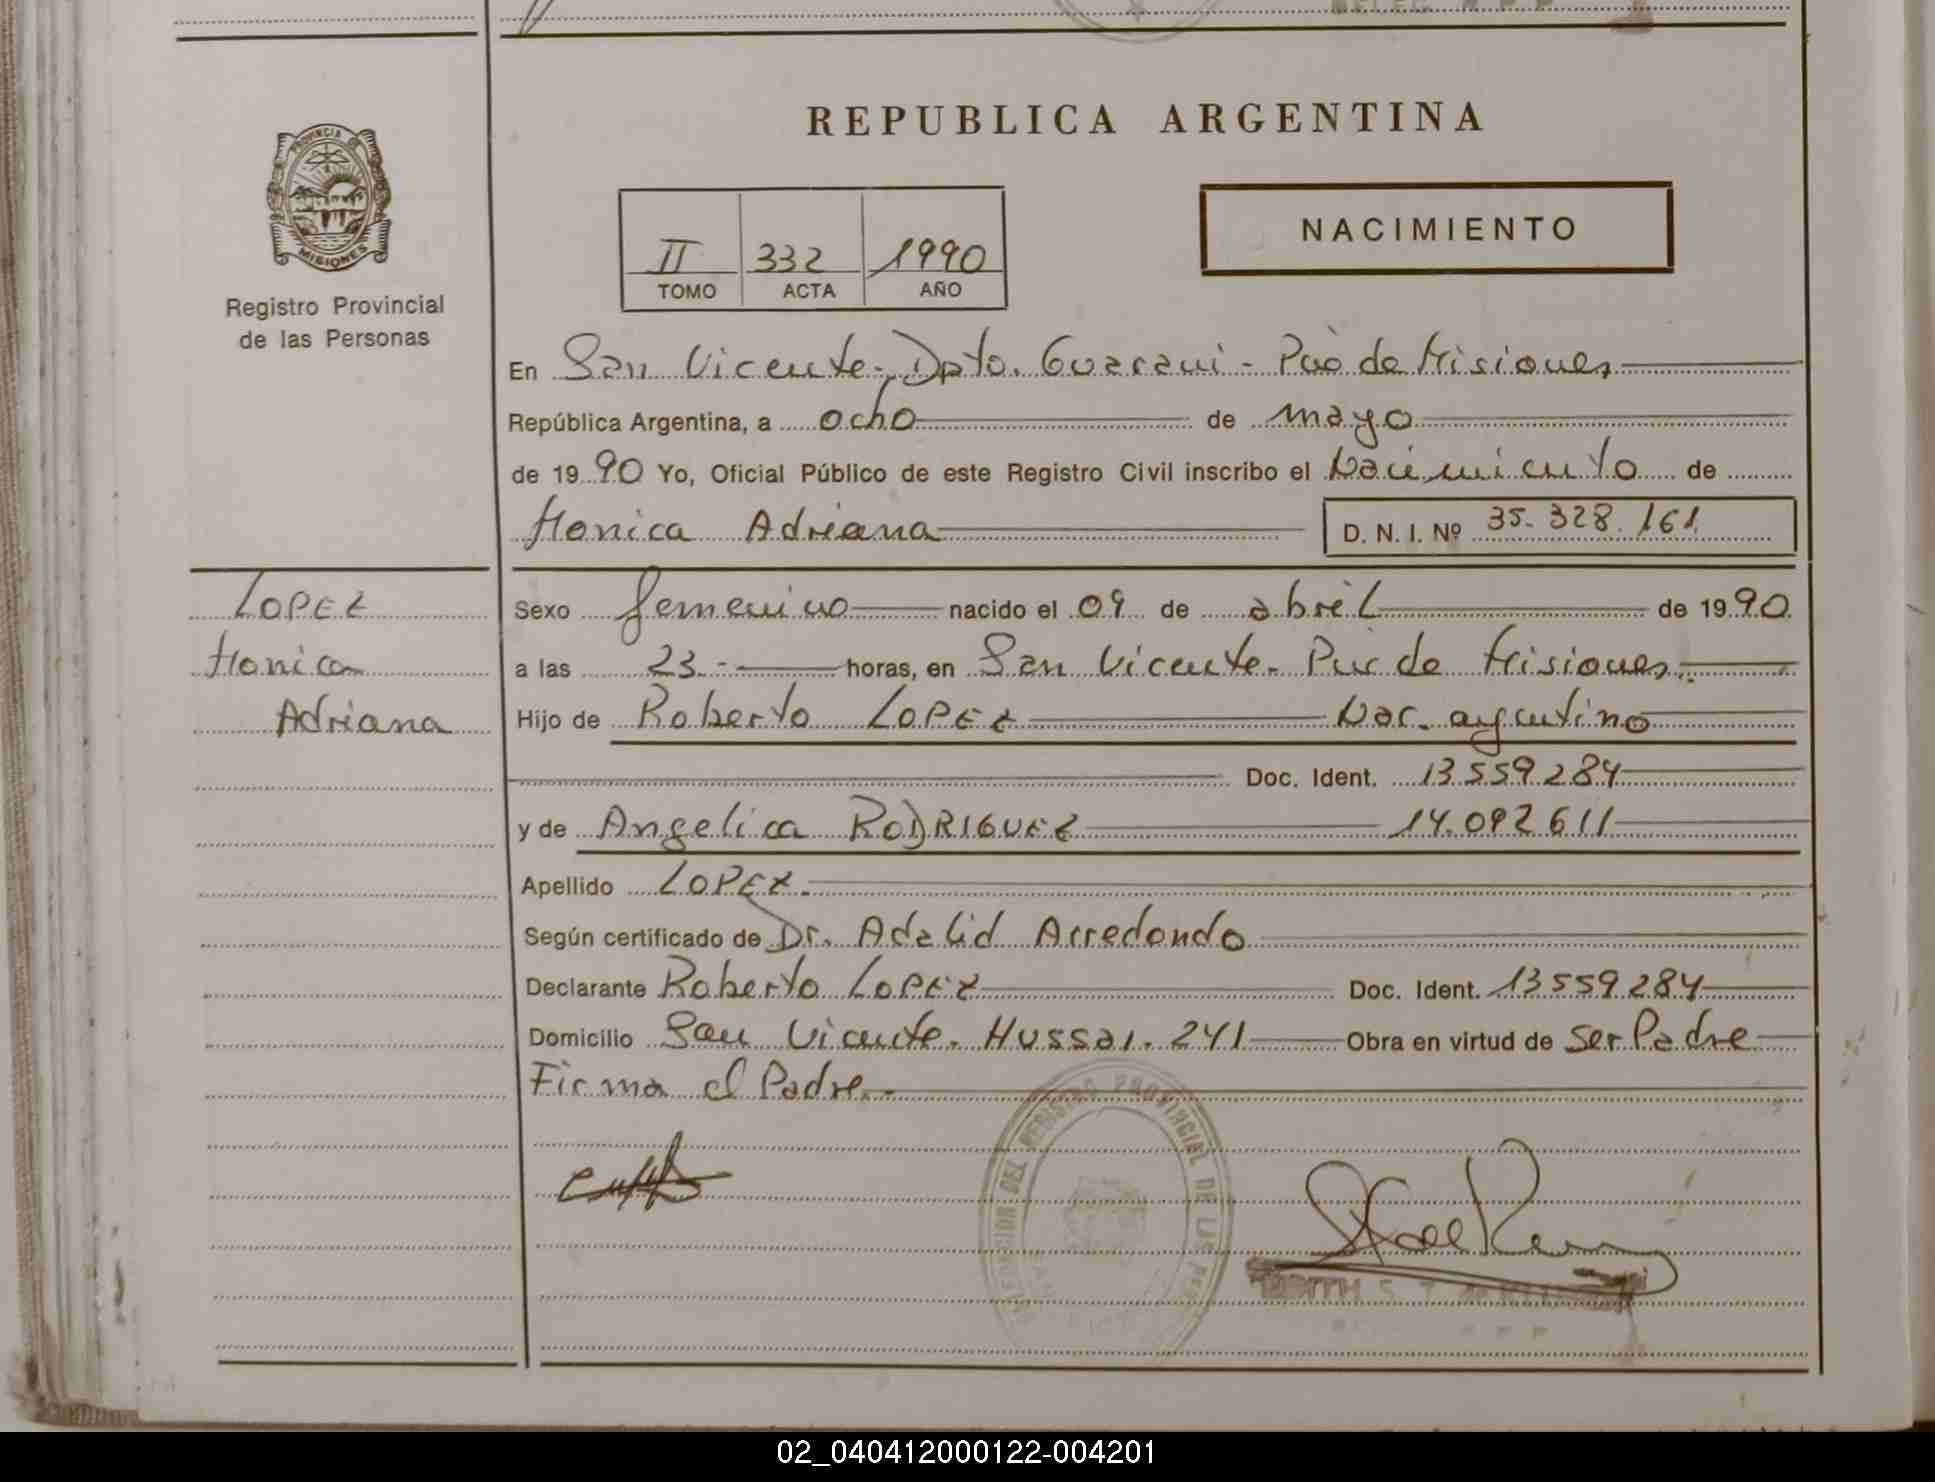 REPUBLICA ARGENTINA
PROVINCIA DE
MISIONES
Registro Provincial
de las Personas
II 332 1990
TOMO ACTA AÑO
NACIMIENTO
En San Vicente - Dpto. Guarani - Pcia de Misiones
República Argentina, a ocho de mayo
de 1990 Yo, Oficial Público de este Registro Civil inscribo el Nacimiento de
Monica Adriana D. N. I. Nº 35.328.161
LOPEZ
Monica
Adriana
Sexo femenino nacido el 09 de abril de 1990
a las 23.- horas, en San Vicente - Pcia de Misiones.-
Hijo de Roberto LOPEZ Nac. argentino
Doc. Ident. 13.559.284
y de Angelica RODRIGUEZ 14.092611
Apellido LOPEZ.
Según certificado de Dr. Adalid Arredondo
Declarante Roberto LOPEZ Doc. Ident. 13559284
Domicilio San Vicente. Hussai. 241 Obra en virtud de ser Padre
Firma el Padre.-
DELEGACION DEL REGISTRO PROVINCIAL DE LAS
02_040412000122-004201